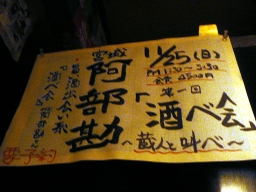 11/25(日)
PM1:30~3:30
会費4500円
第一回
「酒べ会」
~蔵人と叫べ~
宮城
阿部勘
要予約